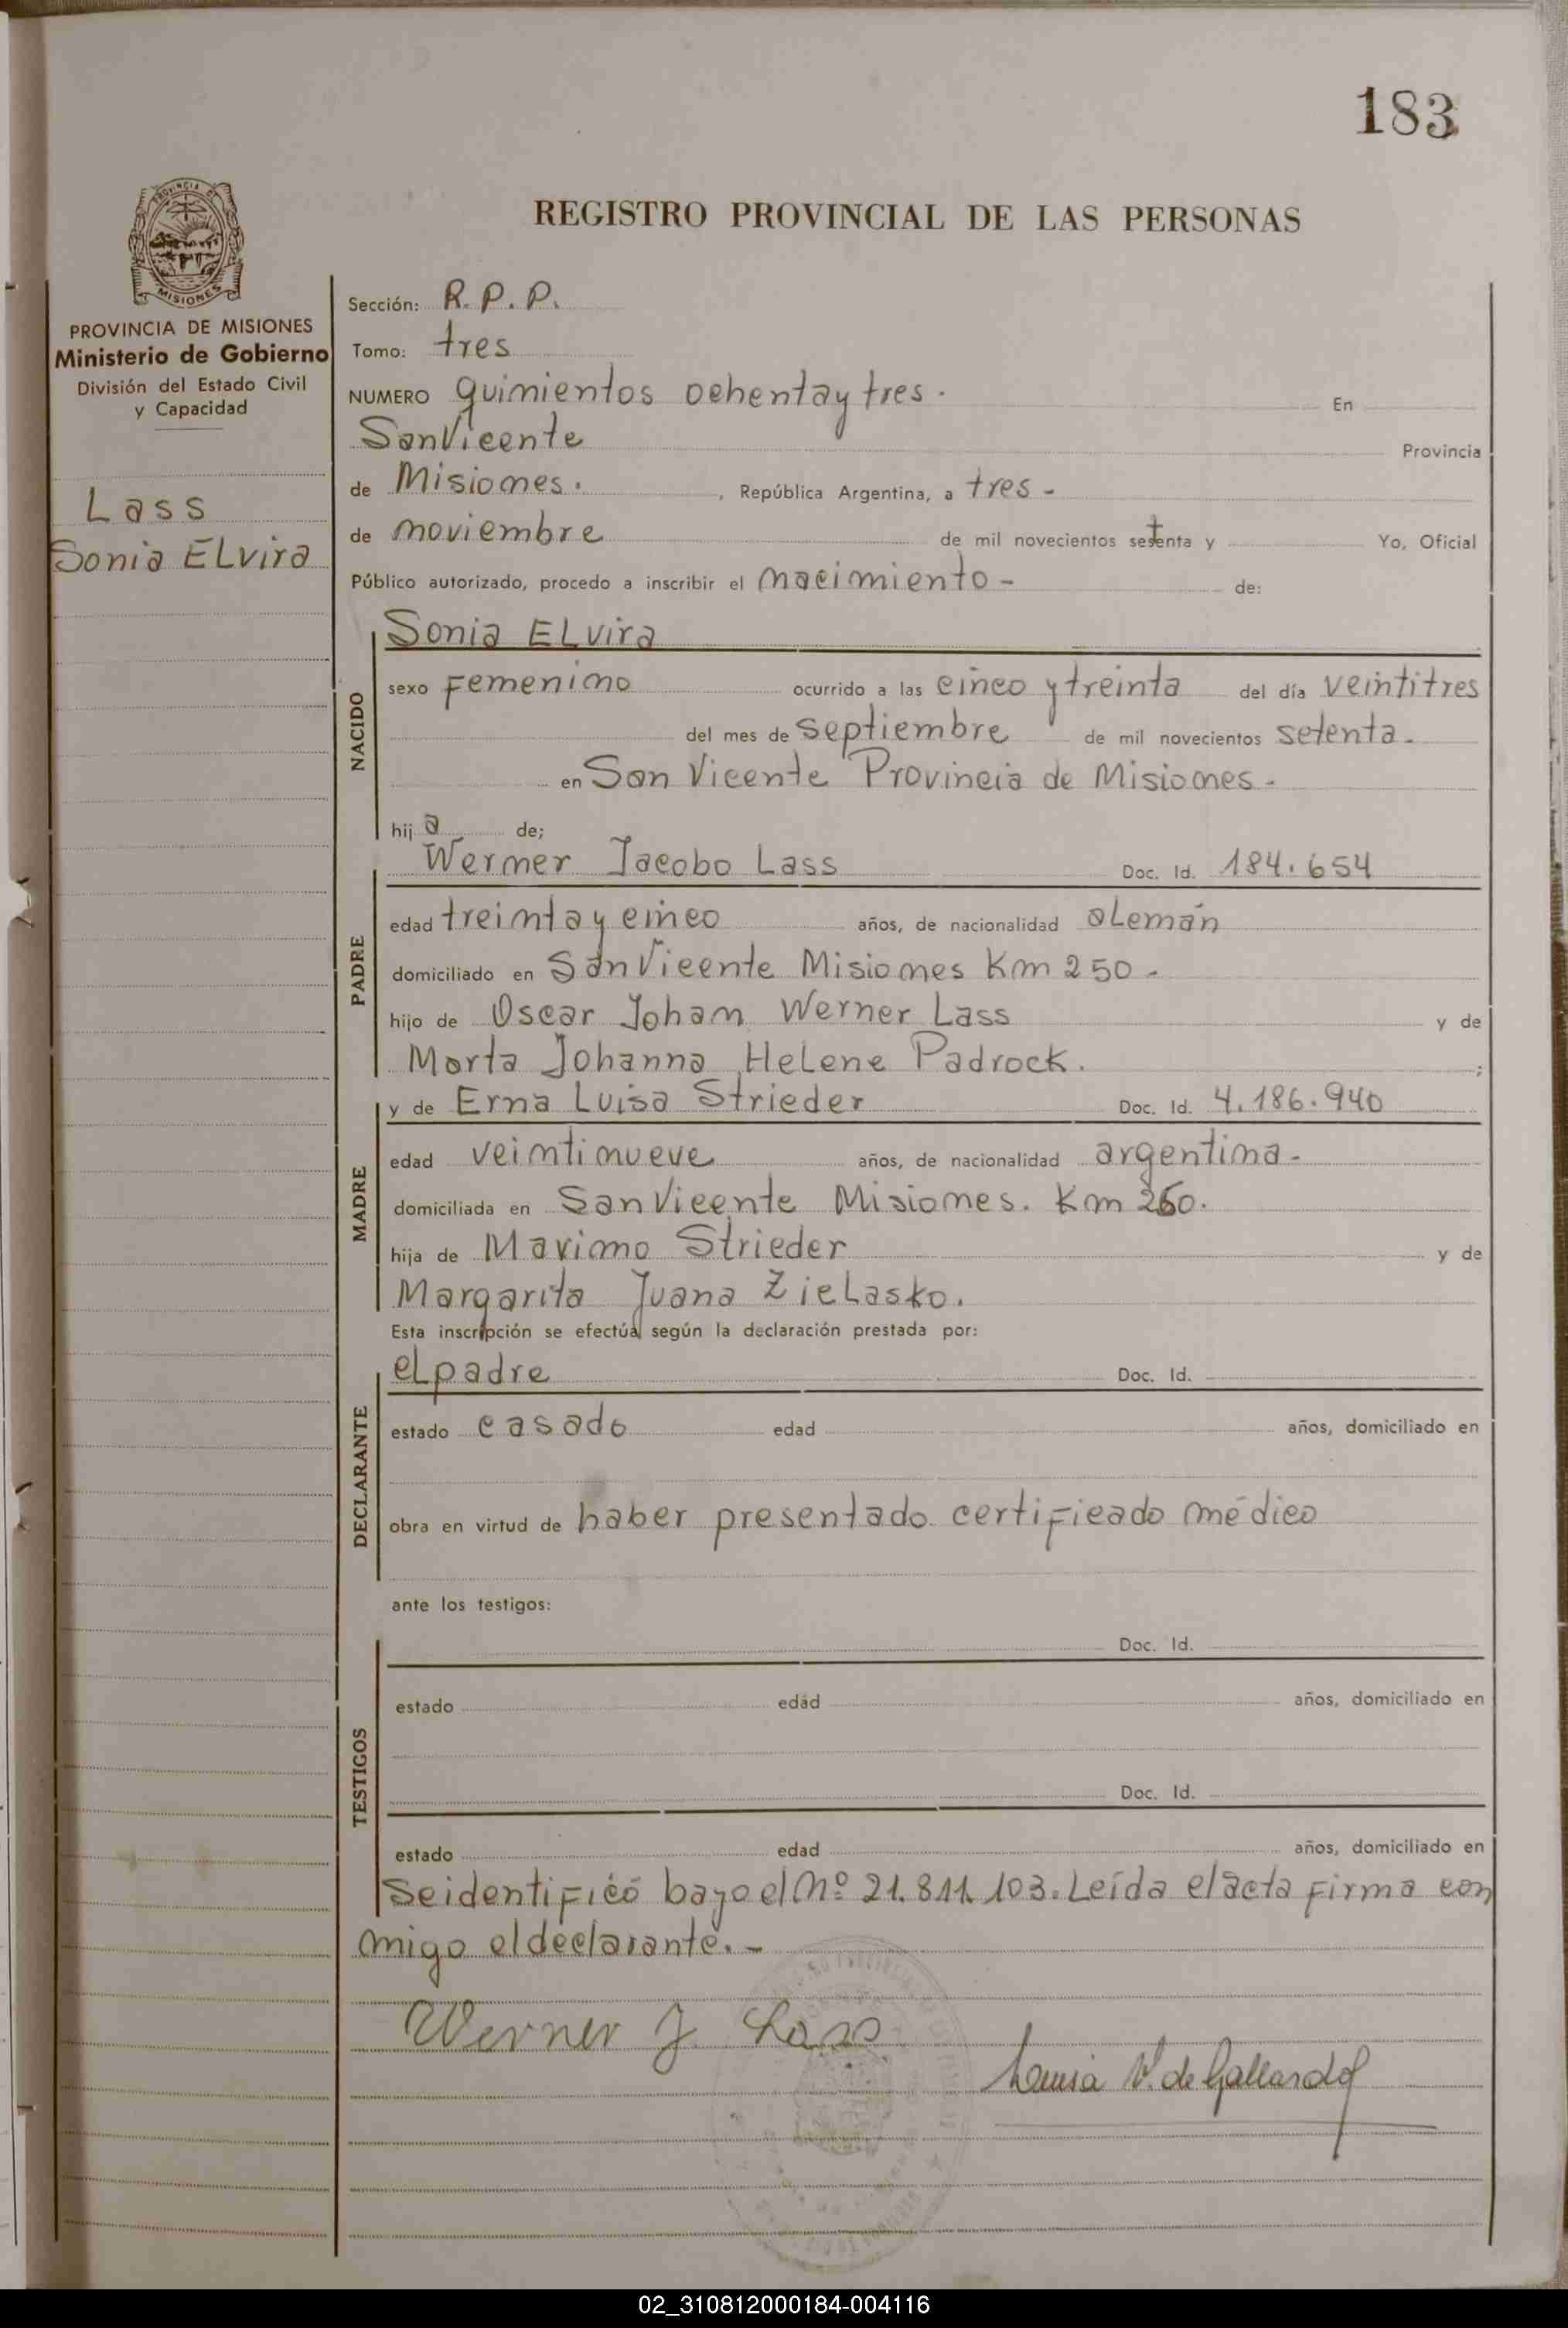 183
REGISTRO PROVINCIAL DE LAS PERSONAS
MISIONES
PROVINCIA DE MISIONES
Ministerio de Gobierno
División del Estado Civil
y Capacidad
Lass
Sonia Elvira
Sección: R. P. P.
Tomo: tres
NUMERO quinientos ochenta y tres. En
San Vicente Provincia
de Misiones. , República Argentina, a tres -
de noviembre de mil novecientos setenta y Yo, Oficial
Público autorizado, procedo a inscribir el nacimiento - de:
NACIDO
Sonia Elvira
sexo Femenino ocurrido a las cinco y treinta del día veintitres
del mes de septiembre de mil novecientos setenta.
en San Vicente Provincia de Misiones.
hij a de;
PADRE
Werner Jacobo Lass Doc. Id. 184.654
edad treinta y cinco años, de nacionalidad alemán
domiciliado en San Vicente Misiones Km 250 -
hijo de Oscar Johan Werner Lass y de
Marta Johanna Helene Padrock. ;
MADRE
y de Erna Luisa Strieder Doc. Id. 4.186.940
edad veintinueve años, de nacionalidad argentina -
domiciliada en San Vicente Misiones. Km 260.
hija de Maximo Strieder y de
Margarita Juana Zielasko.
Esta inscripción se efectúa según la declaración prestada por:
DECLARANTE
el padre Doc. Id.
estado casado edad años, domiciliado en
obra en virtud de haber presentado certificado médico
ante los testigos:
TESTIGOS
Doc. Id.
estado edad años, domiciliado en
Doc. Id.
estado edad años, domiciliado en
Se identificó bajo el Nº 21.811.103. Leída el acta firma con
migo el declarante. -
Werner J. Lass
Luisa V. de Gallardo
02_310812000184-004116